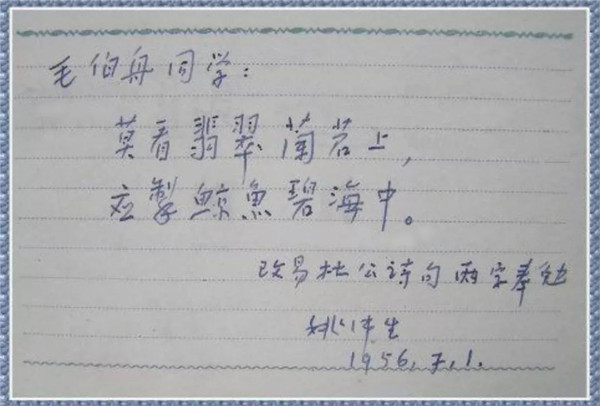 毛伯舟同学：
莫看翡翠蘭苕上，
应掣鲸魚碧海中。
改易杜公诗句两字奉勉
姚
1956.7.1.